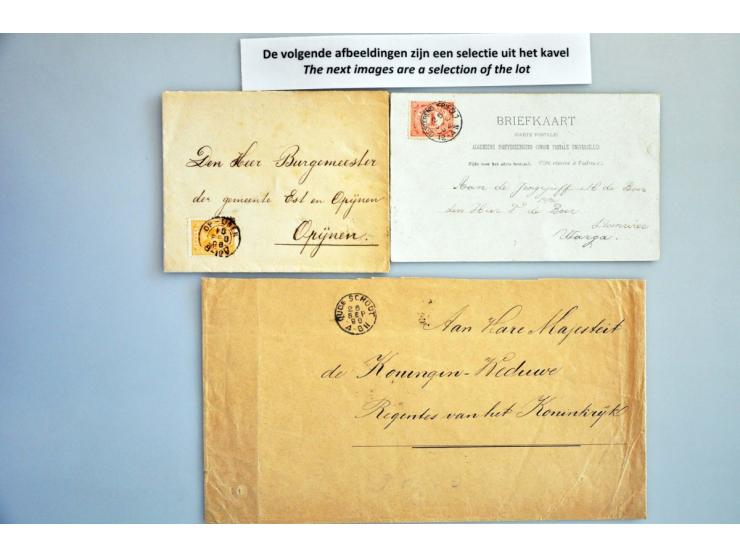 De volgende afbeeldingen zijn een selectie uit het kavel
The next images are a selection of the lot
Den Heer Burgemeester
der gemeente Est en Opijnen
Opijnen.
BRIEFKAART
(CARTE POSTALE)
ALGEMEENE POSTVEREENIGING (UNION POSTALE UNIVERSELLE)
Zijde voor het adres bestemd. Côté réservé à l'adresse.
Aan de M de Boer
den Heer de Boer
Warga.
OUDE SCHOOT
28
SEP
90
Aan Hare Majesteit
de Koningin-Weduwe
Regentes van het Koninkrijk